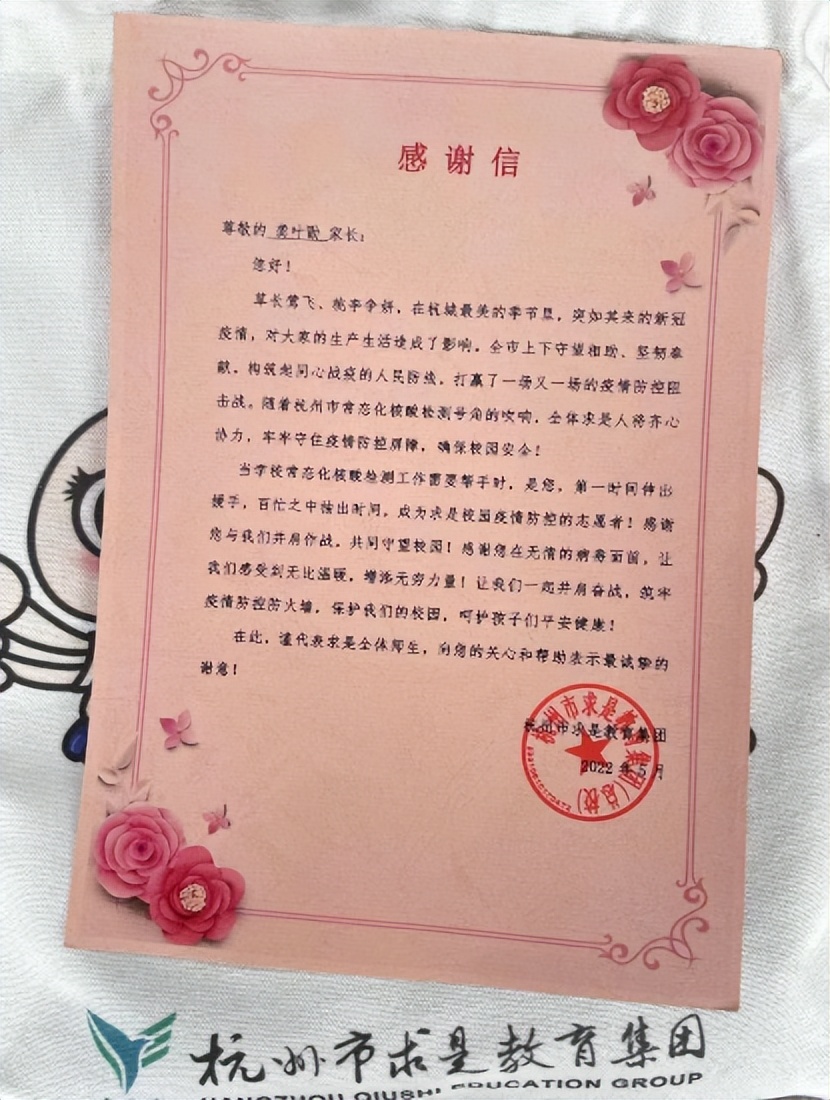 感谢信
尊敬的 龚叶歆 家长：
您好！
草长莺飞、桃李争妍，在杭城最美的季节里，突如其来的新冠
疫情，对大家的生产生活造成了影响。全市上下守望相助、坚韧奉
献，构筑起同心战疫的人民防线，打赢了一场又一场的疫情防控阻
击战。随着杭州市常态化核酸检测号角的吹响，全体求是人将齐心
协力，牢牢守住疫情防控屏障，确保校园安全！
当学校常态化核酸检测工作需要帮手时，是您，第一时间伸出
援手，百忙之中抽出时间，成为求是校园疫情防控的志愿者！感谢
您与我们并肩作战，共同守望校园！感谢您在无情的病毒面前，让
我们感受到无比温暖，增添无穷力量！让我们一起并肩奋战，筑牢
疫情防控防火墙，保护我们的校园，呵护孩子们平安健康！
在此，谨代表求是全体师生，向您的关心和帮助表示最诚挚的
谢意！
杭州市求是教育集团
2022 年 5 月
杭州市求是教育集团(总校)
杭州市求是教育集团
HANGZHOU QIUSHI EDUCATION GROUP